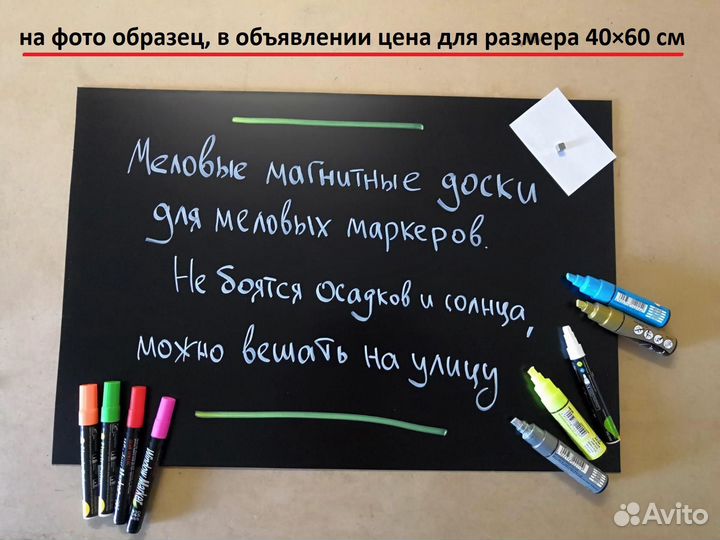 на фото образец, в объявлении цена для размера 40×60 см
Меловые магнитные доски
для меловых маркеров.
Не боятся осадков и солнца,
можно вешать на улицу
Avito